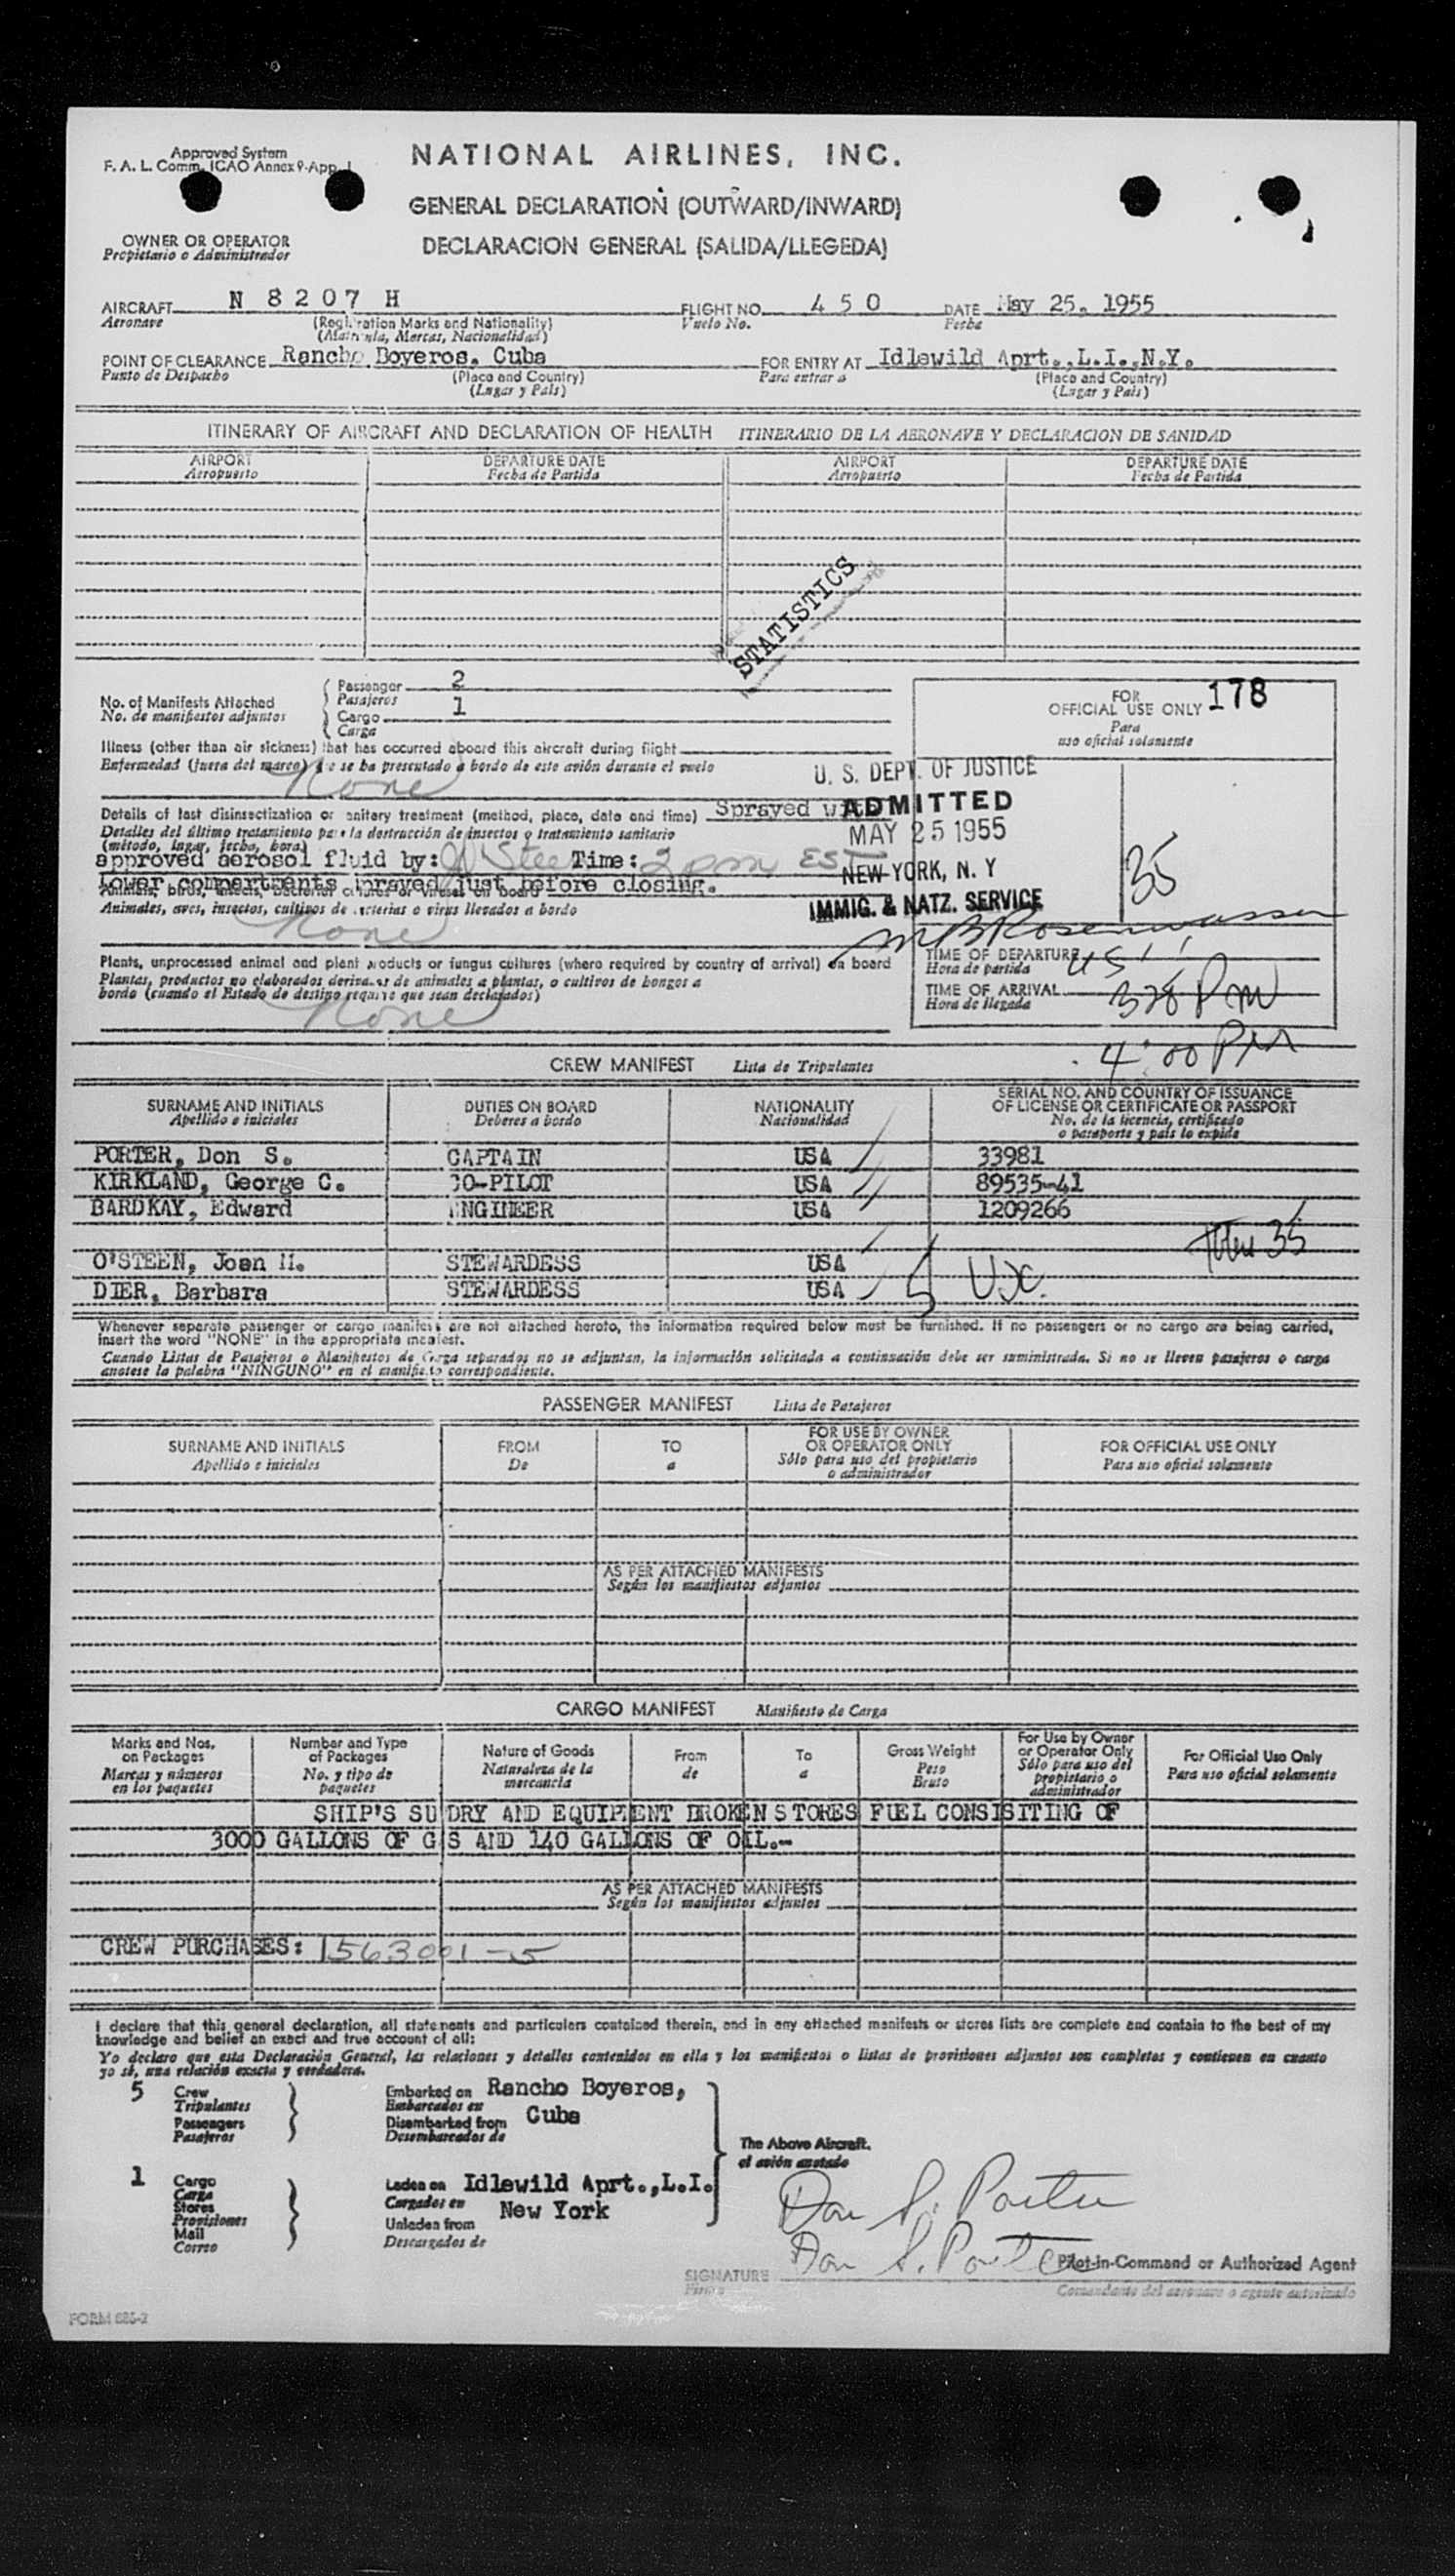 Approved System
F. A. L. Comm. ICAO Annex 9-App. 1
NATIONAL AIRLINES, INC.
GENERAL DECLARATION (OUTWARD/INWARD)
DECLARACION GENERAL (SALIDA/LLEGEDA)
OWNER OR OPERATOR
Propietario o Administrador
AIRCRAFT N 8207 H FLIGHT NO. 450 DATE May 25, 1955
Aeronave (Registration Marks and Nationality) Vuelo No. Fecha
(Matricula, Marcas, Nacionalidad)
POINT OF CLEARANCE Rancho Boyeros, Cuba FOR ENTRY AT Idlewild Aprt.,L.I.,N.Y.
Punto de Despacho (Place and Country) Para entrar a (Place and Country)
(Lugar y Pais) (Lugar y Pais)
ITINERARY OF AIRCRAFT AND DECLARATION OF HEALTH ITINERARIO DE LA AERONAVE Y DECLARACION DE SANIDAD
AIRPORT DEPARTURE DATE AIRPORT DEPARTURE DATE
Aeropuerto Fecha de Partida Aeropuerto Fecha de Partida
STATISTICS
No. of Manifests Attached
No. de manifiestos adjuntos
Passenger 2
Pasajeros
Cargo 1
Carga
FOR
OFFICIAL USE ONLY 178
Para
uso oficial solamente
Illness (other than air sickness) that has occurred aboard this aircraft during flight
Enfermedad (fuera del mareo) que se ha presentado a bordo de este avión durante el vuelo
None
U. S. DEPT. OF JUSTICE
ADMITTED
MAY 25 1955
NEW YORK, N. Y
IMMIG. & NATZ. SERVICE
35
Details of last disinsectization or sanitary treatment (method, place, date and time) Sprayed
Detalles del último tratamiento para la destrucción de insectos o tratamiento sanitario
(método, lugar, fecha, hora)
approved aerosol fluid by: Time: 2 pm EST
Lower compartments sprayed just before closing.
Animales, aves, insectos, cultivos de bacterias o virus llevados a bordo
None
Plants, unprocessed animal and plant products or fungus cultures (where required by country of arrival) on board
Plantas, productos no elaborados derivados de animales o plantas, o cultivos de hongos a
bordo (cuando el Estado de destino requiere que sean declarados)
None
TIME OF DEPARTURE
Hora de partida
TIME OF ARRIVAL 328 PM
Hora de llegada
4:00 PM
CREW MANIFEST Lista de Tripulantes
SURNAME AND INITIALS DUTIES ON BOARD NATIONALITY SERIAL NO. AND COUNTRY OF ISSUANCE
OF LICENSE OR CERTIFICATE OR PASSPORT
Apellido e iniciales Deberes a bordo Nacionalidad No. de la licencia, certificado
o pasaporte y país lo expide
PORTER, Don S. CAPTAIN USA 33981
KIRKLAND, George C. CO-PILOT USA 89535-41
BARDKAY, Edward ENGINEER USA 1209266
35
O'STEEN, Joan H. STEWARDESS USA
DIER, Barbara STEWARDESS USA 5
Whenever separate passenger or cargo manifests are not attached hereto, the information required below must be furnished. If no passengers or no cargo are being carried,
insert the word "NONE" in the appropriate manifest.
Cuando Listas de Pasajeros o Manifiestos de Carga separados no se adjuntan, la información solicitada a continuación debe ser suministrada. Si no se lleven pasajeros o carga
anotese la palabra "NINGUNO" en el manifiesto correspondiente.
PASSENGER MANIFEST Lista de Pasajeros
SURNAME AND INITIALS FROM TO FOR USE BY OWNER
OR OPERATOR ONLY FOR OFFICIAL USE ONLY
Apellido e iniciales De a Sólo para uso del propietario
o administrador Para uso oficial solamente
AS PER ATTACHED MANIFESTS
Según los manifiestos adjuntos
CARGO MANIFEST Manifiesto de Carga
Marks and Nos.
on Packages
Marcas y números
en los paquetes
Number and Type
of Packages
No. y tipo de
paquetes
Nature of Goods
Naturaleza de la
mercancia
From
de
To
a
Gross Weight
Peso
Bruto
For Use by Owner
or Operator Only
Sólo para uso del
propietario o
administrador
For Official Use Only
Para uso oficial solamente
SHIP'S SUNDRY AND EQUIPMENT BROKEN STORES FUEL CONSISITING OF
3000 GALLONS OF GAS AND 140 GALLONS OF OIL.-
AS PER ATTACHED MANIFESTS
Según los manifiestos adjuntos
CREW PURCHASES: 1563001-5
I declare that this general declaration, all statements and particulars contained therein, and in any attached manifests or stores lists are complete and contain to the best of my
knowledge and belief an exact and true account of all:
Yo declaro que esta Declaración General, las relaciones y detalles contenidos en ella y los manifiestos o listas de provisiones adjuntos son completos y contienen en cuanto
yo sé, una relación exacta y verdadera.
5 Crew
Tripulantes
Passengers
Pasajeros
Embarked on Rancho Boyeros,
Embarcados en
Disembarked from Cuba
Desembarcados de
The Above Aircraft.
el avión anotado
1 Cargo
Carga
Stores
Provisiones
Mail
Correo
Laden on Idlewild Aprt.,L.I.
Cargados en New York
Unladen from
Descargados de
Don S. Porter
Don S. Porter
SIGNATURE
Firma
Pilot-in-Command or Authorized Agent
Comandante del aeronave o agente autorizado
FORM 885-2